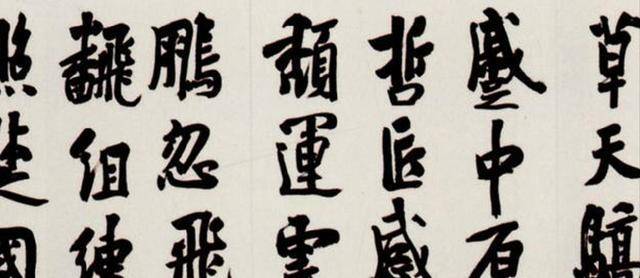 草天驕
蹙中原
哲匠感
頹運雲
鵬忽飛
翻組練
照楚國